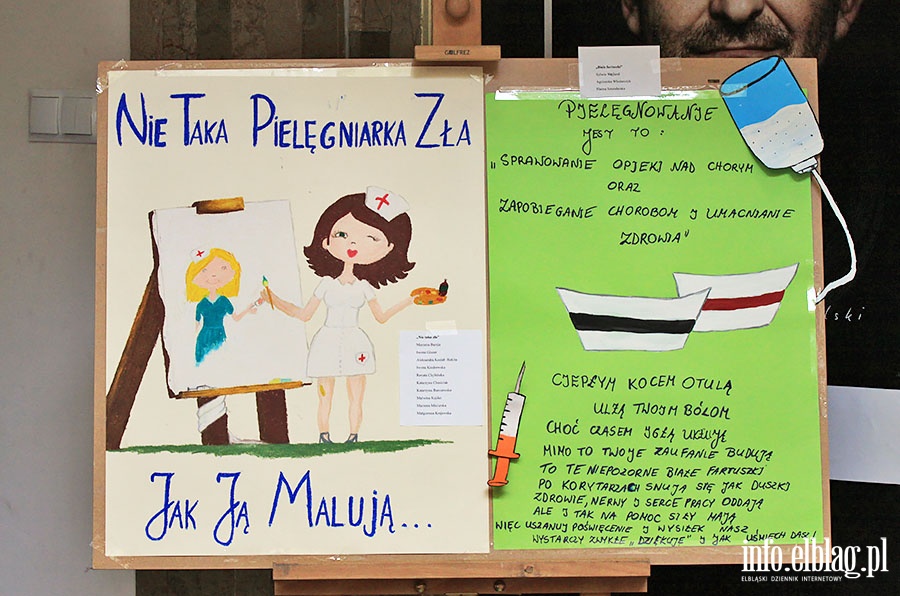 GOLFREZ
Nie Taka Pielęgniarka Zła
Jak Ją Malują...
„Nie taka zła"
PJELĘGNOWANJE
JEST TO :
„SPRAWOWANIE OPJEKJ NAD CHORYM
ORAZ
ZAPOBIEGANJE CHOROBOM J UMACNIANJE
ZDROWIA"
CJEPŁYM KOCEM OTULĄ
ULŻĄ TWOJM BÓLOM
CHOĆ CZASEM JGŁĄ UKŁUJĄ
MIMO TO TWOJE ZAUFANIE BUDUJĄ
TO TE NIEPOZORNE BIAŁE FARTUSZKJ
PO KORYTARZACH SNUJĄ SIĘ JAK DUSZKJ
ZDROWIE, NERWY J SERCE PRACY ODDAJĄ
ALE J TAK NA POMOC SIŁY MAJĄ
WJĘC USZANUJ POŚWJĘCENJE J WYSJŁEK NASZ
WYSTARCZY ZWYKŁE „DZJĘKUJĘ" J JAK UŚMJECH DASZ!
ski
info.elblag.pl
ELBLĄSKI DZIENNIK INTERNETOWY